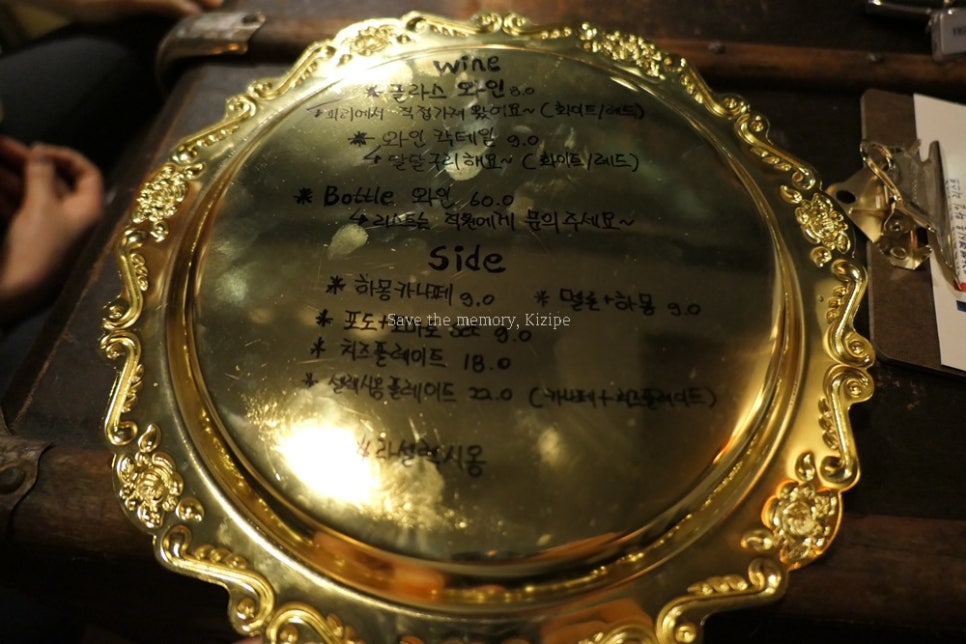 wine
* 글라스 와인 8.0
↳ 파리에서 직접가져 왔어요~ (화이트/레드)
* 와인 칵테일 9.0
↳ 달달구리해요~ (화이트/레드)
* Bottle 와인 60.0
↳ 리스트는 직원에게 문의주세요~
Side
* 하몽카나페 9.0 * 멜론+하몽 9.0
* 포도+토마토 Set 9.0
Save the memory, Kizipe
* 치즈플레이트 18.0
* 셀렉시옹플레이트 22.0 (카나페+치즈플레이트)
#라셀렉시옹